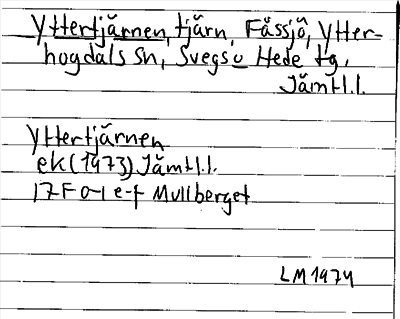 Yttertjärnen, tjärn, Fåssjö, Ytter-
hogdals sn, Svegs o Hede tg,
Jämtl.l.
Yttertjärnen
ek (1973) Jämtl.l.
17F 0-1 e-f Mullberget
LM 1974